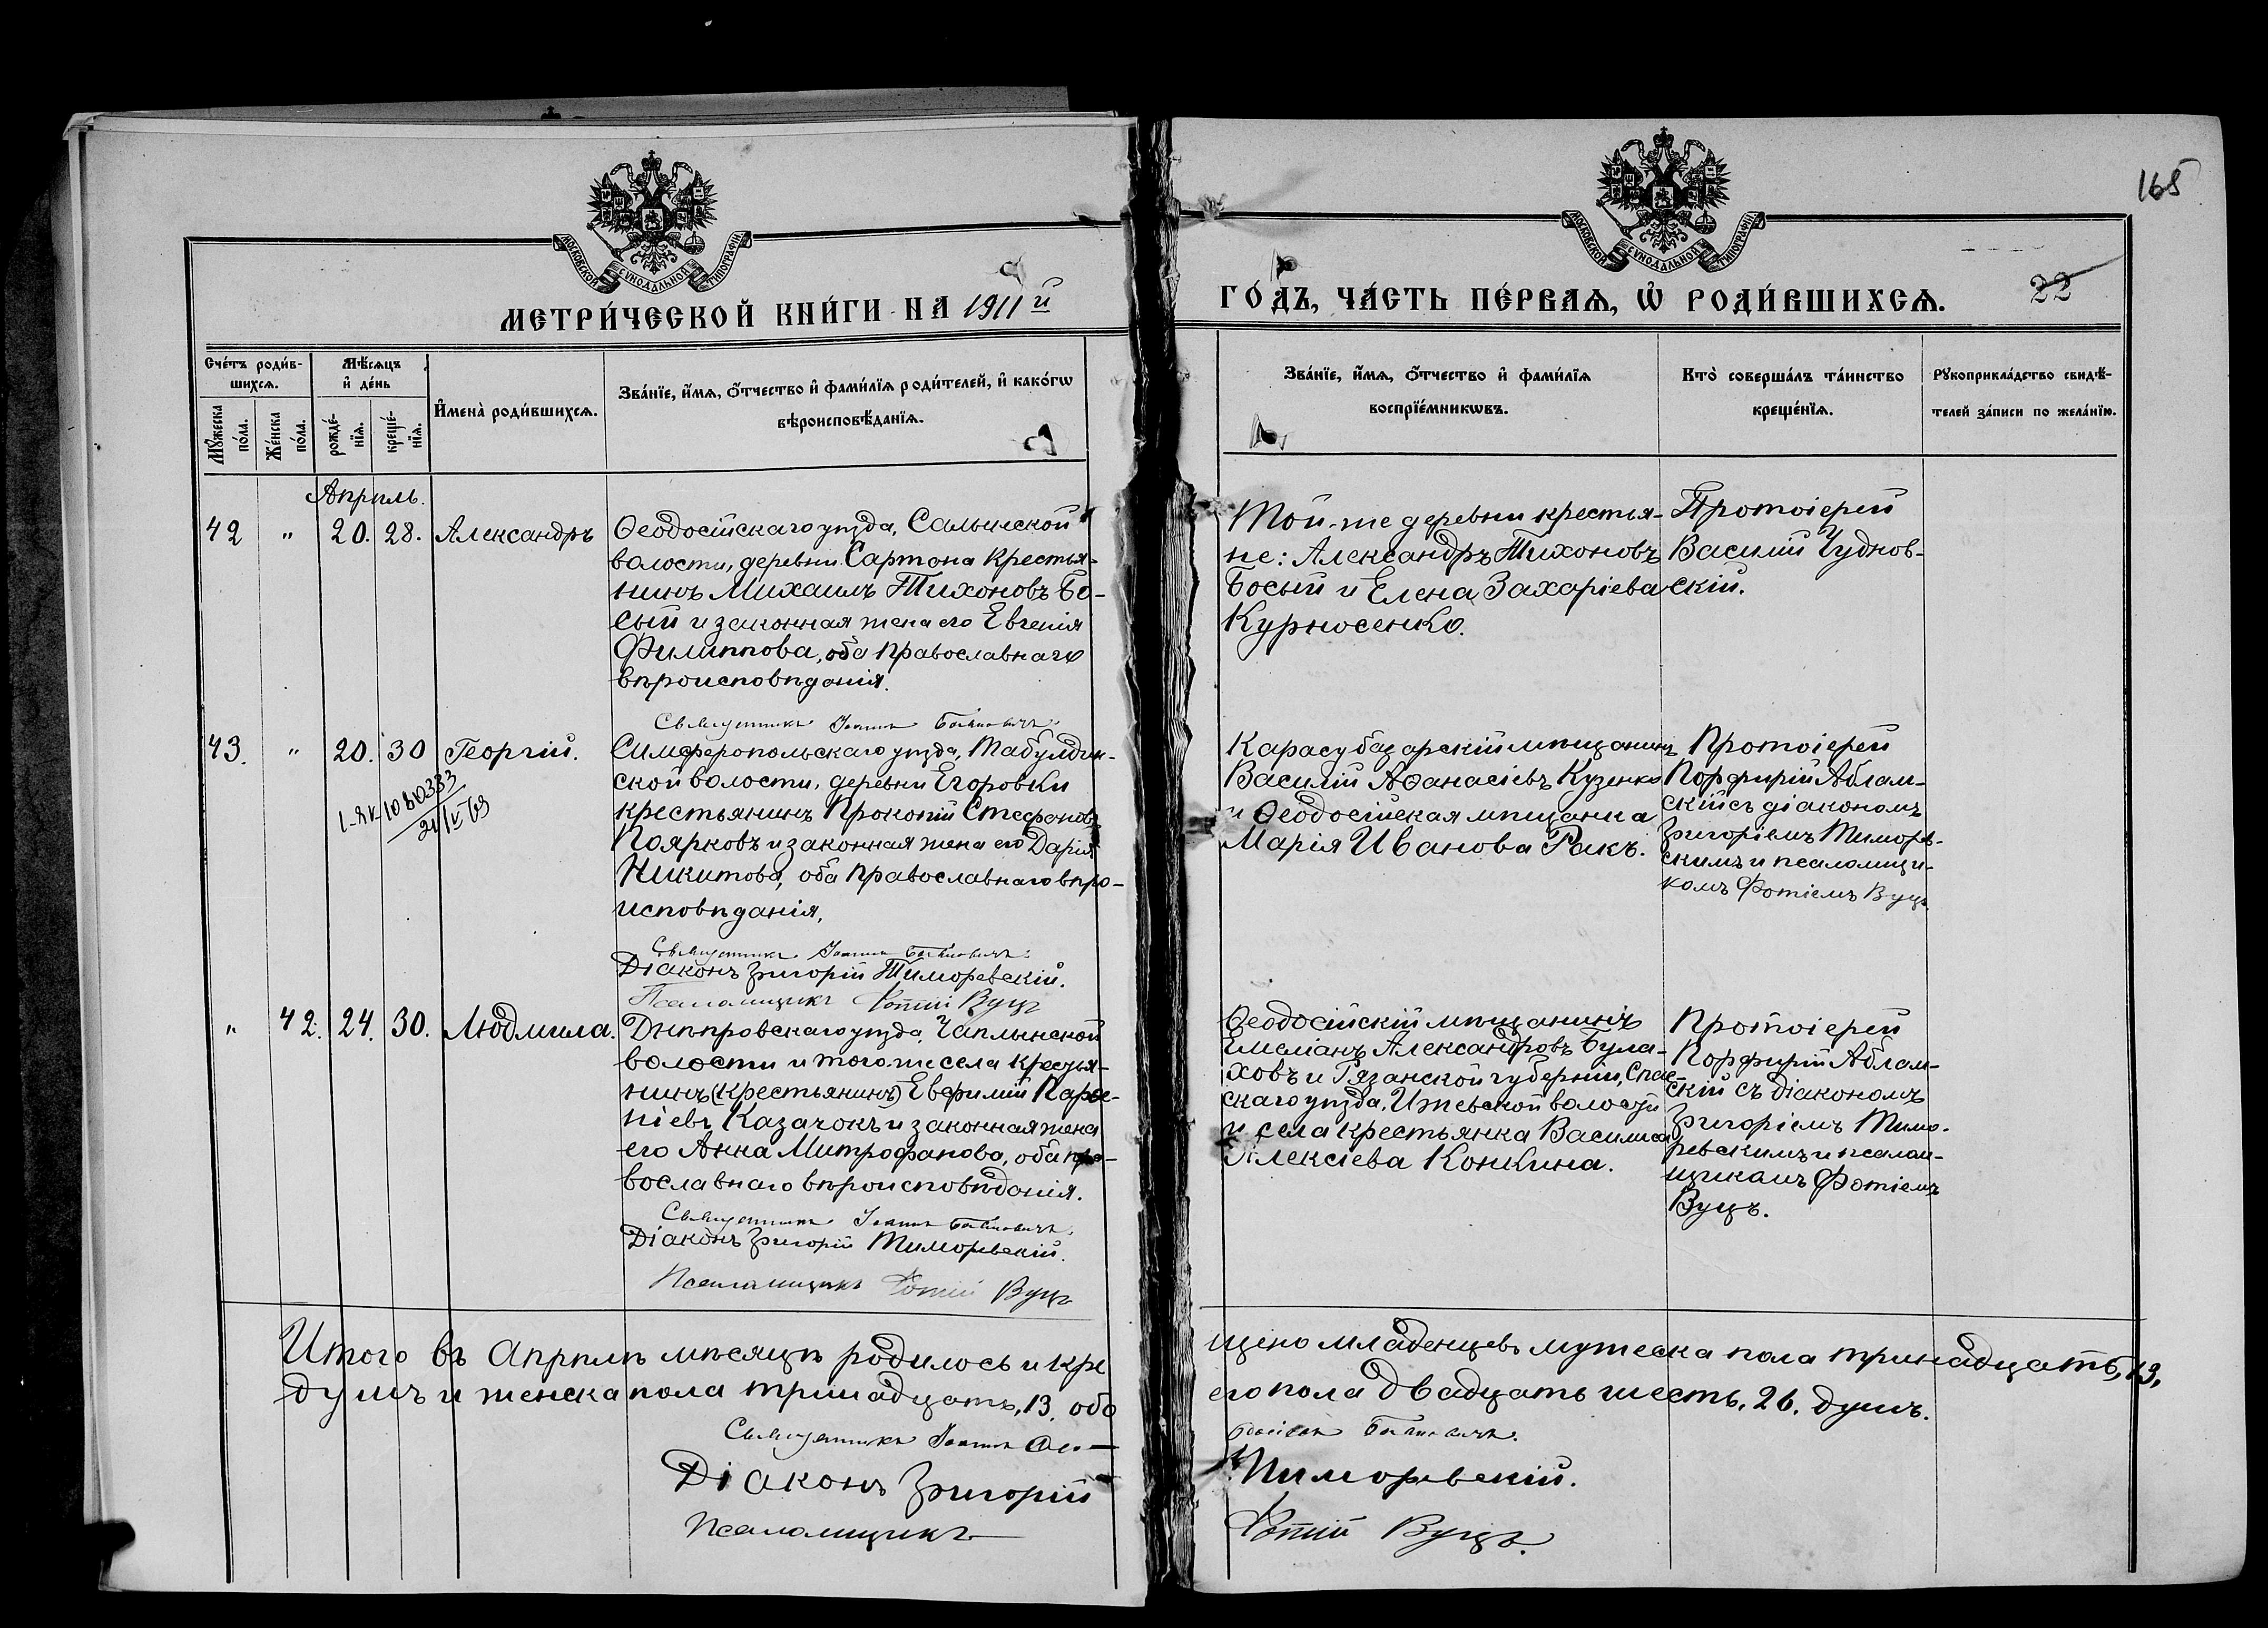 165
МОСКОВСКОЙ СѴНОДАЛЬНОЙ ТИПОГРАФІИ
МОСКОВСКОЙ СѴНОДАЛЬНОЙ ТИПОГРАФІИ
МЕТРИ́ЧЕСКОЙ КНИ́ГИ НА 1911й
ГО́ДЪ, ЧА́СТЬ ПЕ́РВАѦ, Ѡ҆ РОДИ́ВШИХСѦ.
22
Сче́тъ роди́в-
шихсѧ.
Мꙋ́жеска по́ла.
Же́нска по́ла.
Мѣ́сѧцъ
и҆ де́нь
рожде́-
нїѧ.
креще́-
нїѧ.
И҆мена̀ роди́вшихсѧ.
Зва́нїе, и҆́мѧ, ѻ҆́тчество и҆ фами́лїѧ роди́телей, и҆ како́гѡ
вѣроисповѣ́данїѧ.
Зва́нїе, и҆́мѧ, ѻ҆́тчество и҆ фами́лїѧ
воспрїе́мникѡвъ.
Кто̀ соверша́лъ та́инство
креще́нїѧ.
Рꙋкоприкла́дство свидѣ́-
телей за́писи по жела́нїю.
Апрѣль.
42 " 20. 28. Александръ
Ѳеодосійскаго уѣзда, Салынской
волости, деревни Сартона крестья-
нинъ Михаилъ Тихоновъ Бо-
сый и законная жена его Евгенія
Филиппова, оба православнаго
вѣроисповѣданія.
Священникъ Іоаннъ
Той-же деревни крестья-
не: Александръ Тихоновъ
Босый и Елена Захаріева
Курносенко.
Протоіерей
Василій Чуднов-
скій.
43. " 20. 30 Георгій.
21/IV 69
Симферопольскаго уѣзда, Табулдин-
ской волости, деревни Егоровки
крестьянинъ Прокопій Стефановъ
Поярковъ и законная жена его Дарія
Никитова, оба православнаго вѣро-
исповѣданія.
Священникъ Іоаннъ
Діаконъ Григорій Тиморевскій.
Псаломщикъ Фотій Вуцъ
Карасубазарскій мѣщанинъ
Василій Аѳанасіевъ Кузенко
и Ѳеодосійская мѣщанка
Марія Иванова Ракъ.
Протоіерей
Порфирій Аблам-
скій съ діакономъ
Григоріемъ Тиморев-
скимъ и псаломщи-
комъ Фотіемъ Вуцъ.
" 42. 24. 30. Людмила.
Днѣпровскаго уѣзда, Чаплынской
волости и того-же села крестья-
нинъ (крестьянинъ) Евфимій Парѳе-
ніевъ Казачокъ и законная жена
его Анна Митрофанова, оба пра-
вославнаго вѣроисповѣданія.
Священникъ Іоаннъ
Діаконъ Григорій Тиморевскій.
Псаломщикъ Фотій Вуцъ
Ѳеодосійскій мѣщанинъ
Емеліанъ Александровъ Була-
ховъ и Рязанской губерніи, Спас-
скаго уѣзда, Ижевской волости
и села крестьянка Василиса
Алексіева Конкина.
Протоіерей
Порфирій Аблам-
скій съ діакономъ
Григоріемъ Тимо-
ревскимъ и псалом-
щикомъ Фотіемъ
Вуцъ.
Итого въ Апрѣлѣ мѣсяцѣ родилось и кре
щено младенцевъ мужеска пола тринадцать, 13,
душъ и женска пола тринадцать, 13, обо
его пола двадцать шесть, 26, душъ.
Священникъ Іоаннъ
Діаконъ Григорій
Тиморевскій.
Псаломщикъ
Фотій Вуцъ.